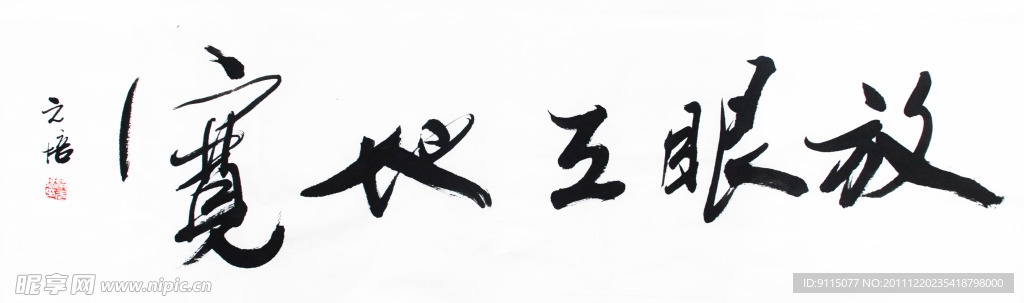 放眼天地寬
元培
昵享网 www.nipic.cn
ID:9115077 NO:20111220235418798000